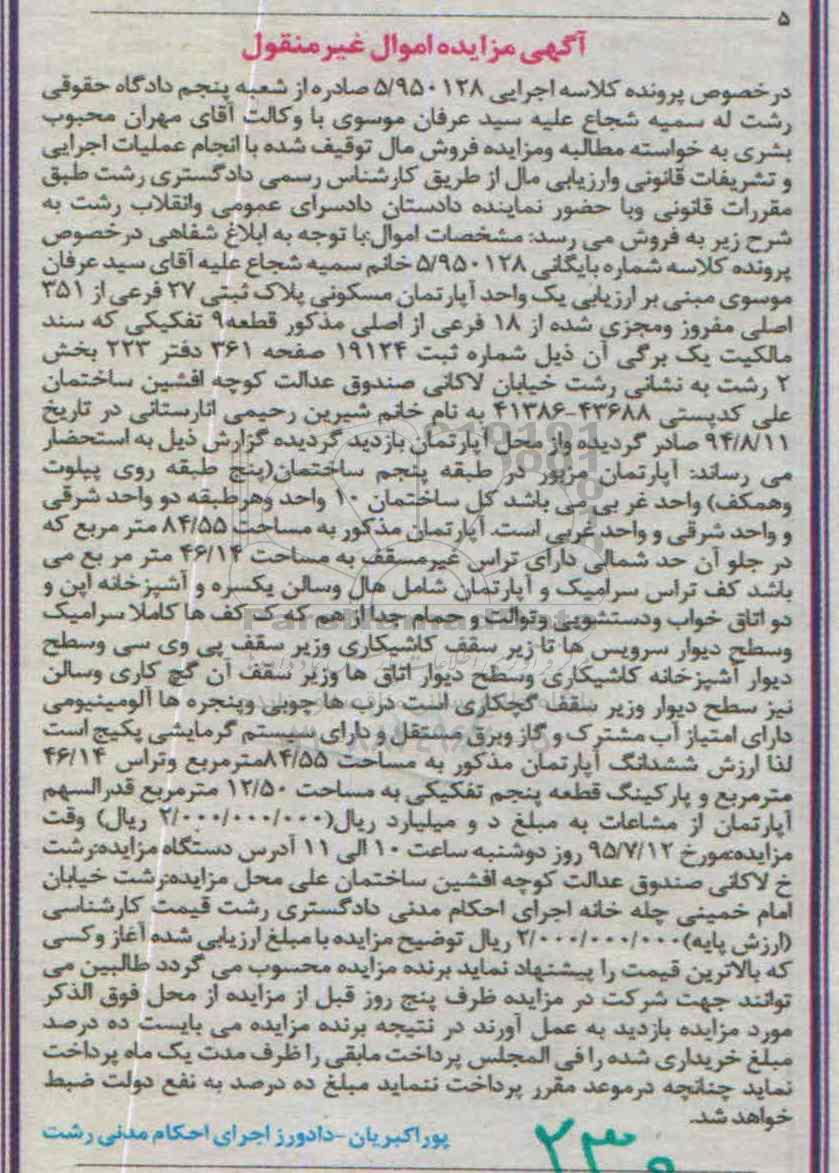 ۵
آگهی مزایده اموال غیرمنقول
درخصوص پرونده کلاسه اجرایی ۵/۹۵۰۱۲۸ صادره از شعبه پنجم دادگاه حقوقی
رشت له سمیه شجاع علیه سید عرفان موسوی با وکالت آقای مهران محبوب
بشری به خواسته مطالبه ومزایده فروش مال توقیف شده با انجام عملیات اجرایی
و تشریفات قانونی وارزیابی مال از طریق کارشناس رسمی دادگستری رشت طبق
مقررات قانونی وبا حضور نماینده دادستان دادسرای عمومی وانقلاب رشت به
شرح زیر به فروش می رسد: مشخصات اموال:با توجه به ابلاغ شفاهی درخصوص
پرونده کلاسه شماره بایگانی ۵/۹۵۰۱۲۸ خانم سمیه شجاع علیه آقای سید عرفان
موسوی مبنی بر ارزیابی یک واحد آپارتمان مسکونی پلاک ثبتی ۲۷ فرعی از ۳۵۱
اصلی مفروز ومجزی شده از ۱۸ فرعی از اصلی مذکور قطعه۹ تفکیکی که سند
مالکیت یک برگی آن ذیل شماره ثبت ۱۹۱۲۴ صفحه ۳۶۱ دفتر ۲۲۳ بخش
۲ رشت به نشانی رشت خیابان لاکانی صندوق عدالت کوچه افشین ساختمان
علی کدپستی ۴۳۶۸۸-۴۱۳۸۶ به نام خانم شیرین رحیمی انارستانی در تاریخ
۹۴/۸/۱۱ صادر گردیده واز محل آپارتمان بازدید گردیده گزارش ذیل به استحضار
می رساند: آپارتمان مزبور در طبقه پنجم ساختمان(پنج طبقه روی پیلوت
وهمکف) واحد غر بی می باشد کل ساختمان ۱۰ واحد وهرطبقه دو واحد شرقی
و واحد شرقی و واحد غربی است. آپارتمان مذکور به مساحت ۸۴/۵۵ متر مربع که
در جلو آن حد شمالی دارای تراس غیرمسقف به مساحت ۴۶/۱۴ متر مر بع می
باشد کف تراس سرامیک و آپارتمان شامل هال وسالن یکسره و آشپزخانه اپن و
دو اتاق خواب ودستشویی وتوالت و حمام جدا از هم که ک کف ها کاملا سرامیک
وسطح دیوار سرویس ها تا زیر سقف کاشیکاری وزیر سقف پی وی سی وسطح
دیوار آشپزخانه کاشیکاری وسطح دیوار اتاق ها وزیر سقف آن گچ کاری وسالن
نیز سطح دیوار وزیر سقف گچکاری است درب ها چوبی وپنجره ها آلومینیومی
دارای امتیاز آب مشترک و گاز وبرق مستقل و دارای سیستم گرمایشی پکیج است
لذا ارزش ششدانگ آپارتمان مذکور به مساحت ۸۴/۵۵مترمربع وتراس ۴۶/۱۴
مترمربع و پارکینگ قطعه پنجم تفکیکی به مساحت ۱۲/۵۰ مترمربع قدرالسهم
آپارتمان از مشاعات به مبلغ د و میلیارد ریال(۲/۰۰۰/۰۰۰/۰۰۰ ریال) وقت
مزایده:مورخ ۹۵/۷/۱۲ روز دوشنبه ساعت ۱۰ الی ۱۱ آدرس دستگاه مزایده:رشت
خ لاکانی صندوق عدالت کوچه افشین ساختمان علی محل مزایده:رشت خیابان
امام خمینی چله خانه اجرای احکام مدنی دادگستری رشت قیمت کارشناسی
(ارزش پایه)۲/۰۰۰/۰۰۰/۰۰۰ ریال توضیح مزایده با مبلغ ارزیابی شده آغاز وکسی
که بالاترین قیمت را پیشنهاد نماید برنده مزایده محسوب می گردد طالبین می
توانند جهت شرکت در مزایده ظرف پنج روز قبل از مزایده از محل فوق الذکر
مورد مزایده بازدید به عمل آورند در نتیجه برنده مزایده می بایست ده درصد
مبلغ خریداری شده را فی المجلس پرداخت مابقی را ظرف مدت یک ماه پرداخت
نماید چنانچه درموعد مقرر پرداخت ننماید مبلغ ده درصد به نفع دولت ضبط
خواهد شد.
پوراکبریان-دادورز اجرای احکام مدنی رشت